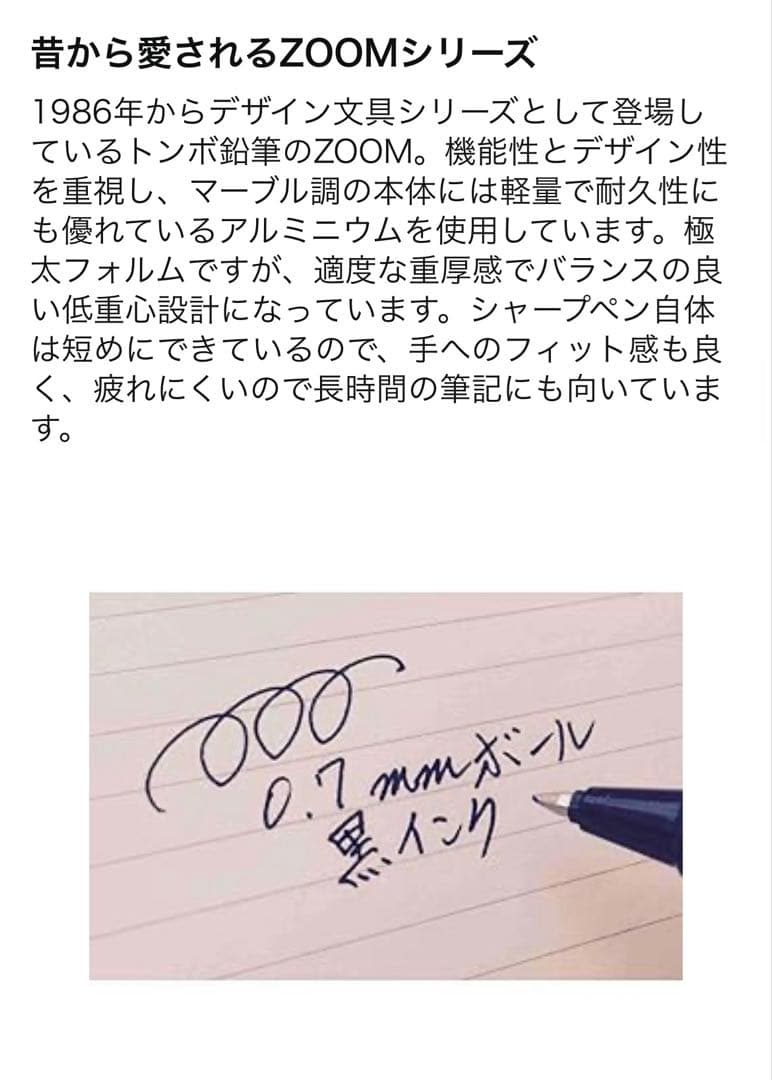 昔から愛されるZOOMシリーズ
1986年からデザイン文具シリーズとして登場し
ているトンボ鉛筆のZOOM。機能性とデザイン性
を重視し、マーブル調の本体には軽量で耐久性に
も優れているアルミニウムを使用しています。極
太フォルムですが、適度な重厚感でバランスの良
い低重心設計になっています。シャープペン自体
は短めにできているので、手へのフィット感も良
く、疲れにくいので長時間の筆記にも向いていま
す。
0.7mmボール
黒インク